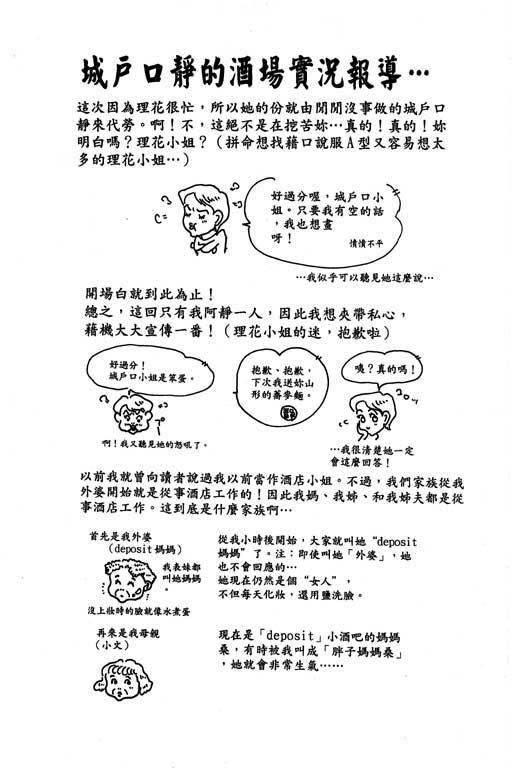 城戸口靜的酒場實況報導…
這次因為理花很忙，所以她的份就由閒閒沒事做的城戸口
靜來代勞。啊！不，這絕不是在挖苦妳…真的！真的！妳
明白嗎？理花小姐？（拼命想找藉口說服A型又容易想太
多的理花小姐…）
好過分喔，城戸口小
姐。只要我有空的話
，我也想畫
呀！
憤憤不平
…我似乎可以聽見她這麼說…
開場白就到此為止！
總之，這回只有我阿靜一人，因此我想夾帶私心，
藉機大大宣傳一番！（理花小姐的迷，抱歉啦）
好過分！
城戸口小姐是笨蛋。
啊！我又聽見她的怒吼了。
抱歉、抱歉，
下次我送妳山
形的蕎麥麵。
咦？真的嗎！
…我很清楚她一定
會這麼回答！
以前我就曾向讀者說過我以前當作酒店小姐。不過，我們家族從我
外婆開始就是從事酒店工作的！因此我媽、我姊、和我姊夫都是從
事酒店工作。這到底是什麼家族啊…
首先是我外婆
（deposit媽媽）
我表妹都
叫她媽媽
。
沒上妝時的臉就像水煮蛋
從我小時後開始，大家就叫她“deposit
媽媽”了。注：即使叫她「外婆」，她
也不會回應的…
她現在仍然是個“女人”，
不但每天化妝，還用鹽洗臉。
再來是我母親
（小文）
現在是「deposit」小酒吧的媽媽
桑，有時被我叫成「胖子媽媽桑」
，她就會非常生氣……